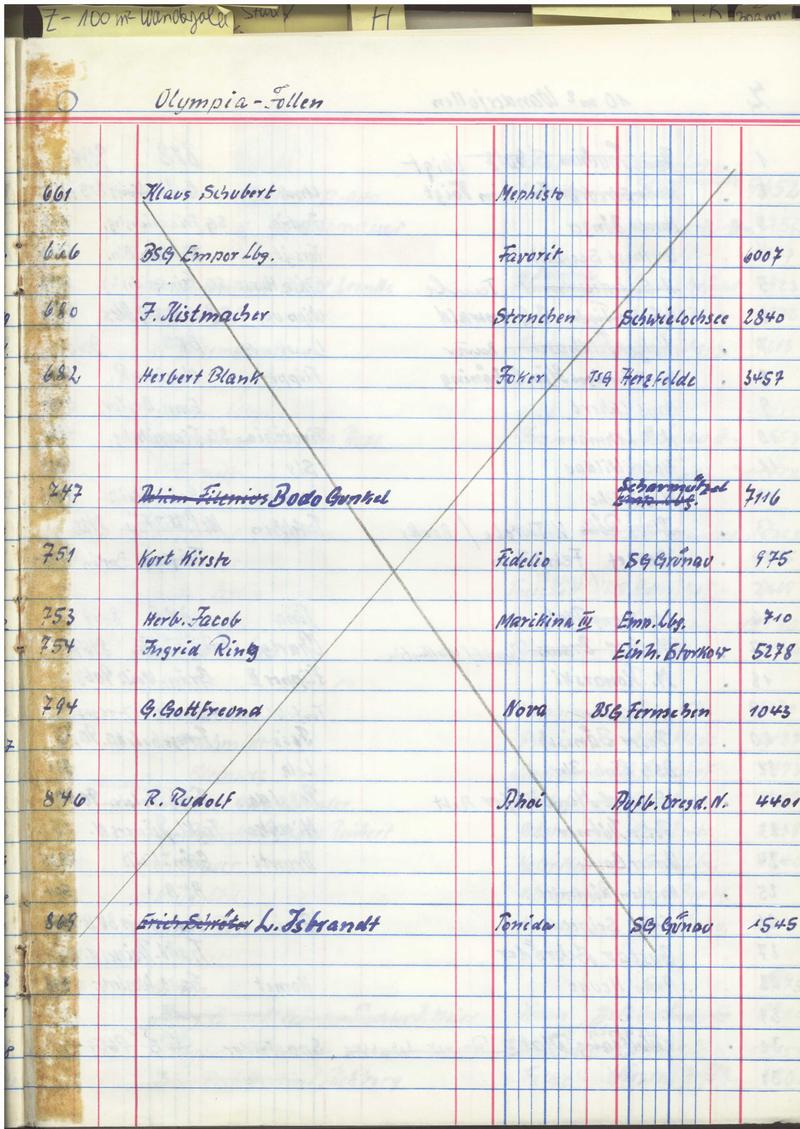 Z - 100 m² Wandsegler
H
Olympia-Jollen
661 Klaus Schubert Mephisto
666 BSG Empor Lbg. Favorit 6007
680 F. Kistmacher Sternchen Schwielochsee 2840
682 Herbert Blank Foker TSG Herzfelde 3457
747 Bodo Gunkel Scharmützel Emp. Lbg. 7116
751 Kurt Kirste Fidelio SG Grünau 975
753 Herb. Jacob Marikina III Emp. Lbg. 710
754 Ingrid Ring Einh. Storkow 5278
794 G. Gottfreund Nova BSG Fernsehen 1043
846 R. Rudolf Ahoi Aufb. Dresd. N. 4401
869 Erich Schröter L. Isbrandt Tonida SG Günau 1545